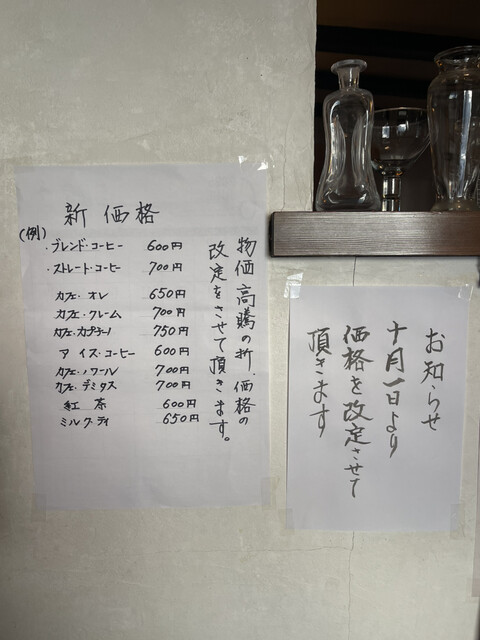 新価格
(例)
・ブレンド・コーヒー 600円
・ストレート・コーヒー 700円
カフェ・オレ 650円
カフェ・クレーム 700円
カフェ・カプチーノ 750円
アイス・コーヒー 600円
カフェ・ノワール 700円
カフェ・デミタス 700円
紅茶 600円
ミルク・ティ 650円
物価高騰の折、価格の
改定をさせて頂きます。
お知らせ
十月一日より
価格を改定させて
頂きます